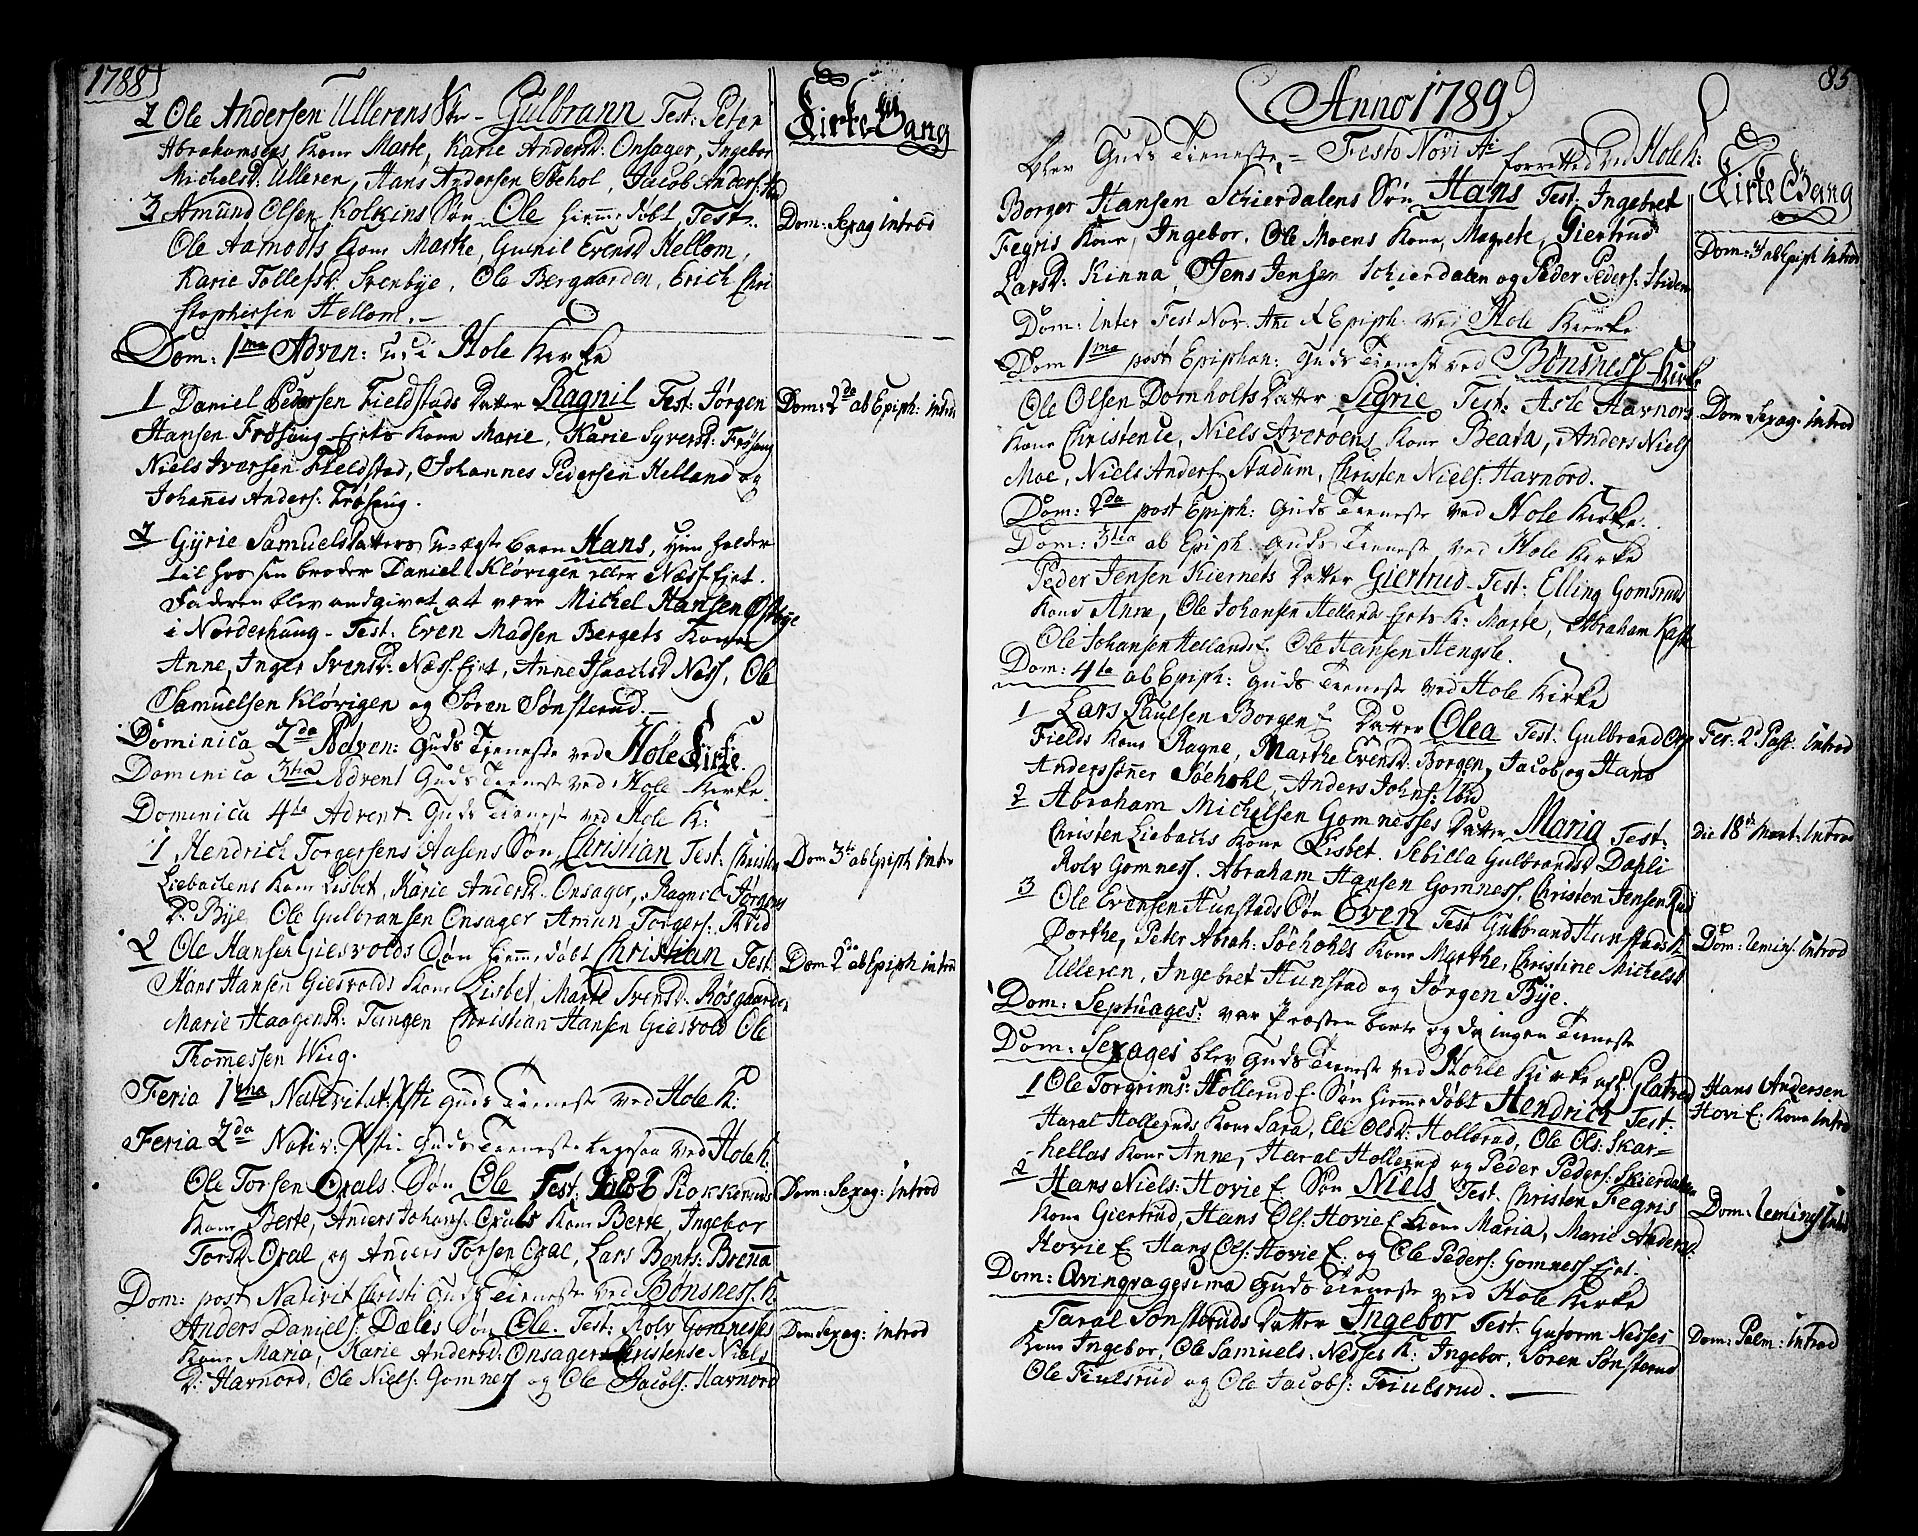 1788
2 Ole Andersen Ullerens Sn - Gulbrann Test: Peter
Abrahamsens Kone Marte, Karie Andersd: Onsager, Ingebor
Michelsd: Ulleren, Hans Andersen Søehol, Jacob Anders:
3 Amund Olsen Kolkins Søn Ole hiemmedøbt, Test:
Ole Aamodts Kone Marte, Gunil Evensd Hellom,
Karie Tollefsd: Svenbye, Ole Bergaarden, Erich Chri
stophersen Hellom.
Dom: 1ma Adven: udi Hole Kirke
1 Daniel Pedersen Fieldstads Datter Ragnil Test: Jørgen
Hansen Frøhaug Ejets Kone Marie, Karie Syversd: Frøhaug
Niels Iversen Fieldstad, Johannes Pedersen Helland og
Johanes Anders: Frøhaug.
2 Gyrie Samuelsdatters uægte barn Hans, hun holder
til hos sin broder Daniel Kløvigen eller Næss-Ejet.
Faderen blev andgivet at være Michel Hansen Østbye
i Norderhaug - Test: Even Madsen Bergets Kone
Anne, Inger Svensd: Næss-Ejet, Anne Isaachsd Næss, Ole
Samuelsen Kløvigen og Søren Sønsterud.
Dominica 2da Adven: Guds Tieneste ved Hole Kirke.
Dominica 3tia Advent Guds Tienest ved Hole Kirke.
Dominica 4ta Advent: Guds Tienest ved Hole K:
1 Hendrich Torgersens Aasens Søn Christian Test: Christen
Liebachens Kone Lisbet, Karie Andersd: Onsager, Ragnil Jørgens
D: Bye, Ole Gulbransen Onsager Amun Torgers: Rud
2 Ole Hansen Giesvolds Søn hiemmedøbt Christian Test:
Hans Hansen Giesvolds Kone Lisbet, Marte Svensd: Røsgaarden
Marie Haagensd: Tangen Christian Hansen Giesvold Ole
Thomessen Wiig.
Feria 1ma Nativitat: Xsti Guds Tieneste ved Hole K:
Feria 2da Nativ: Xsti Guds Tieneste ligesaa ved Hole K:
Ole Torsen Oxals Søn Ole Test: Jacob Rokkeruds
Kone Berte, Anders Johans: Oxals Kone Berte, Ingebor
Torsd: Oxal og Anders Torsen Oxal, Lars Bents: Brenna
Dom: post Nativit Christi Guds Tieneste ved Bønsness: K
Anders Daniels: Dælis Søn Ole. Test: Rolv Gomnesses
Kone Maria, Karie Andersd: Onsager Christense Niels
D: Havnord, Ole Niels: Gomness og Ole Jacobs: Havnord
Kirke Gang
Dom: Sexag introd
Dom: 2da ab Epiph: introd
Dom 3ti ab Epiph Intro
Dom 2da ab Epiph introd
Dom: Sexag: Introd
Dom Sexag: introd
Anno 1789
85
blev Guds Tieneste = Festo Novi Ai forretted ved Hole K:
Borger Hansen Schierdalens Søn Hans Test: Ingebret
Fegris Kone, Ingebor, Ole Moens Kone, Magrete, Giertrud
Larsd: Kinna, Jens Jensen Schierdalen og Peder Peders: Ibidem
Dom: Inter Fest Nov. Ann & Epiph: ved Hole Kierke
Dom 1ma post Epiphan: Guds Tienest ved Bønsness Kirke
Ole Olsen Domholts Datter Sigrie Test: Asle Havnors
Kone Christence, Niels Averøens Kone Beata, Anders Niels
Moe, Niels Anders: Stadum, Christen Niels: Havnord.
Dom: 2da post Epiph: Guds Tieneste ved Hole Kirke.
Dom: 3tia ab Epiph: Guds Tieneste ved Hole Kirke
Peder Jensen Kiernets Datter Giertrud - Test: Elling Gomsruds
Kone Anne, Ole Johansen Hellands Ejets K: Marte, Abraham
Ole Johansen Hellands E. Ole Hansen Hengsle.
Dom: 4ta ab Epiph: Guds Tieneste ved Hole Kirke
1 Lars Paulsen Borgen E Datter Olea Test: Gulbrand
Fields Kone Ragne, Marthe Evensd: Borgen, Jacob og Hans
Anderssønner Søehohl, Anders Johns: Ibid
2 Abraham Michelsen Gomnesses Datter Maria Test:
Christen Liebachs Kone Lisbet. Sebilla Gulbrandsd Dahli
Rolv Gomness. Abraham Hansen Gomness, Christen Jensen Rud
3 Ole Evensen Hunstads Søn Even Test Gulbrand Hunstads K:
Dorthe, Peter Abrah: Søehohls Kone Marthe, Christine Michelsd
Ulleren, Ingebret Hunstad og Jørgen Bye.
Dom: Septuages: var Præsten borte og da ingen Tieneste
Dom: Sexages blev Guds Tieneste ved Hohle Kirke
1 Ole Torgrims: Hollerud E. Søn hiemmedøbt Hendrich Test:
Haral Holleruds Kone Sara, Ele Olsd: Hollerud, Ole Ols: Skar=
hellas Kone Anne, Haral Hollerud og Peder Peders: Skierdalen
2 Hans Niels: Hovie E. Søn Niels Test: Christen Fegris
Kone Giertrud, Hans Ols: Hovie E Kone Maria, Marie Andersd:
Hovie E. Hans Ols: Hovie E. og Ole Peders: Gomness Ejet.
Dom: Qvinqvagesima Guds Tieneste ved Hole Kirke
Taral Sønsteruds Datter Ingebor Test: Guttorm Nesses
Kone Ingebor, Ole Samuels: Nesses K: Ingebor, Søren Sønsterud
Ole Fiulsrud og Ole Jacobs: Fiulsrud.
Kirke Gang
Dom: 3 ab Epiph introd
Dom Sexag: Introd
Fer: 2d Pask: Introd
die 18th Mart: Introd
Dom: Remins: Introd
Hans Andersen
Hovi E. Kone Introd
Dom: Remins Introd
Dom: Palm: introd